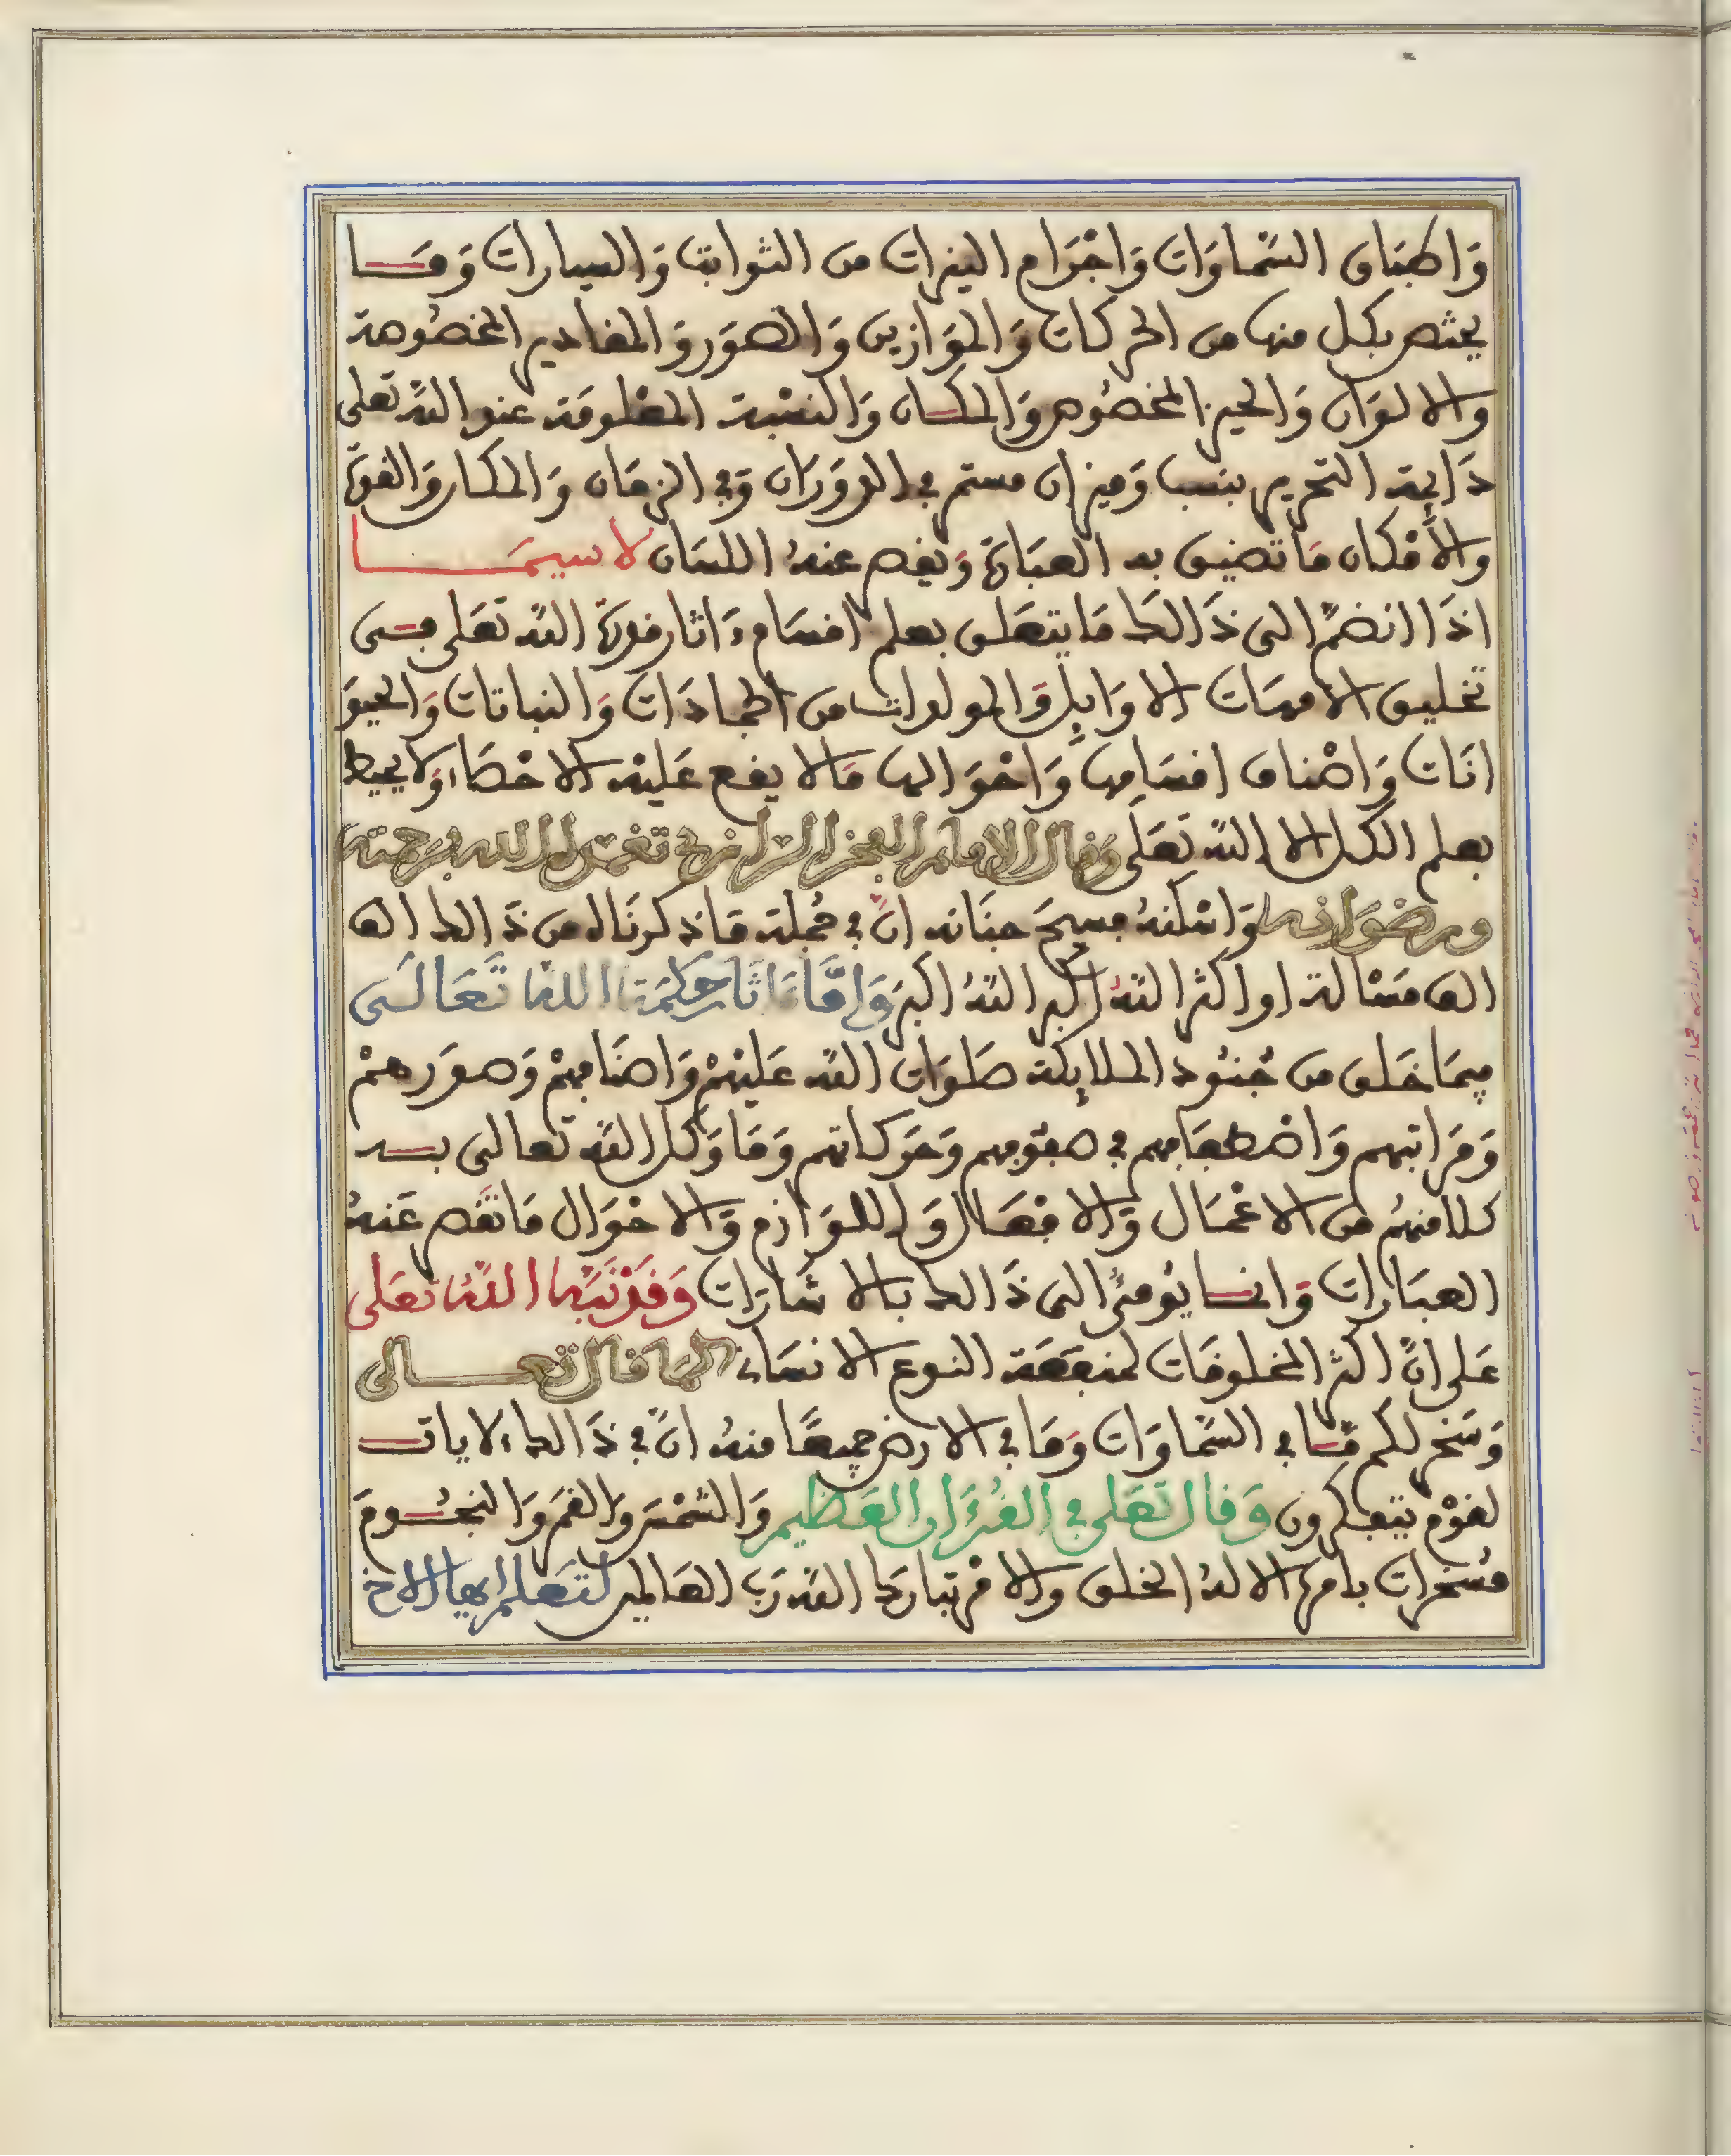 وَاطْبَاق السَّمَاوَات وَاجْرَام النيرات من الثوابت وَالسيارات وَمَا
يختص بكل منها من الحركات وَالمَوَازين وَالصّوَر وَالمقادير المخصُوصة
والالوَان وَالحيز المخصُوص وَالمكان وَالنسْبة المعْلومَة عند اللّه تعلى
دَايمة التحرير بنسب وَميزان مستمر في الدوَرَان وَفي الزمَان وَالمكان وَالقوّة
والأمْكان مَا تضيق به العبَارة وَيقصر عنهُ اللسَان لا سيمَا
اذَا انضمّ الى ذَالك مَا يتعَلق بعلم اقسَام ءَاثار قدرة اللّه تعَلى في
تخليق الامهَات الاوَايل وَالمولدات من الجمادَات وَالنباتات وَالحيوَ
انَات وَاصْناف اقسَامها وَاحْوَالها مَالا يقع عَليْه الاحْصَاء وَلا يحيط
بعلم الكل الا اللّه تعَلى وَقال الامام الفخر الرازي تغمده الله برحمته
ورضوَانه وَاسْكنهُ فسيحَ جنَانه انّ في جُملة مَا ذكرنَاه من ذَالك الف
الف مَسْالة او اكثر اللّهُ اكبر اللّهُ اكبر وَامَّا ءَاثَار حكمَة اللّه تَعَالَى
فيمَا خَلق من جُنُود الملايكة صَلوَات اللّه عَليْهمْ وَاصْنَافهِمْ وَصوَرهمْ
وَمَرَاتبهم وَاصْطفَافهم في صفوفهم وَحَركاتهم وَمَا وَكل اللّه تعالى به
كلا منهُم من الاعْمَال وَالافْعَال وَاللوَازم وَالاحْوَال مَا تقصر عَنهُ
العبَارات وَانما يُومئُ الى ذَالك بالاشَارَات وَقَدْ نَبّهَ اللّهُ تعَلى
عَلى انّ اكثر المخلوقَات لمنفعَة النوع الانسَاني كما قال تعالى
وَسَخر لكم مَّا في السَّمَاوَات وَمَا في الارض جميعًا منهُ انّ في ذَالك ءلايات
لقوْم يتفكرون وَقال تعَلى في القُرءَان العَظيم وَالشمْسَ وَالقمَر وَالنجُومَ
مُسَخرات بامره الا لهُ الخلق والامْر تبارَك اللّه رَبّ العَالمين لتعَلم ايها الاخ